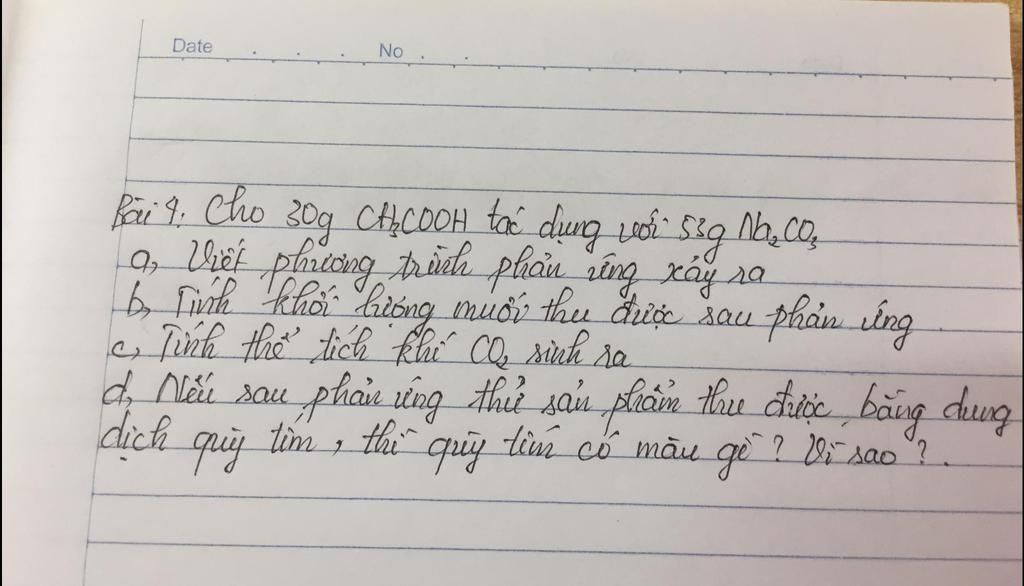 Date . . . No . .
Bài 4: Cho 30g CH3COOH tác dụng với 53g Na2CO3
a, Viết phương trình phản ứng xảy ra
b, Tính khối lượng muối thu được sau phản ứng
c, Tính thể tích khí CO2 sinh ra
d, Nếu sau phản ứng thử sản phẩm thu được bằng dung
dịch quỳ tím, thì quỳ tím có màu gì? Vì sao?.